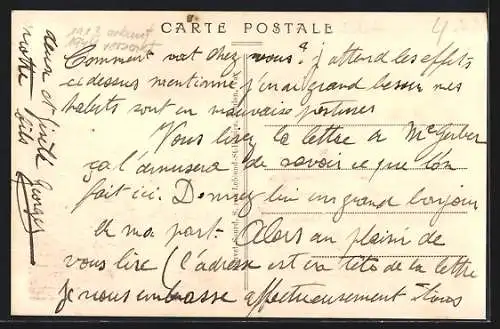 CARTE POSTALE
4
Comment vat chez vous ? j'attend les effets
ci dessus mentionné j'en ai grand besoin mes
sont en mauvaise postures
Vous lirez la lettre a Me Gerber
ça l'amusera de savoir ce que l'on
fait ici. Donnez lui un grand bonjour
de ma part. Alors au plaisir de
vous lire (l'adresse est en tête de la lettre
je vous embrasse affectueusement tous
deux et
votre fils Georges